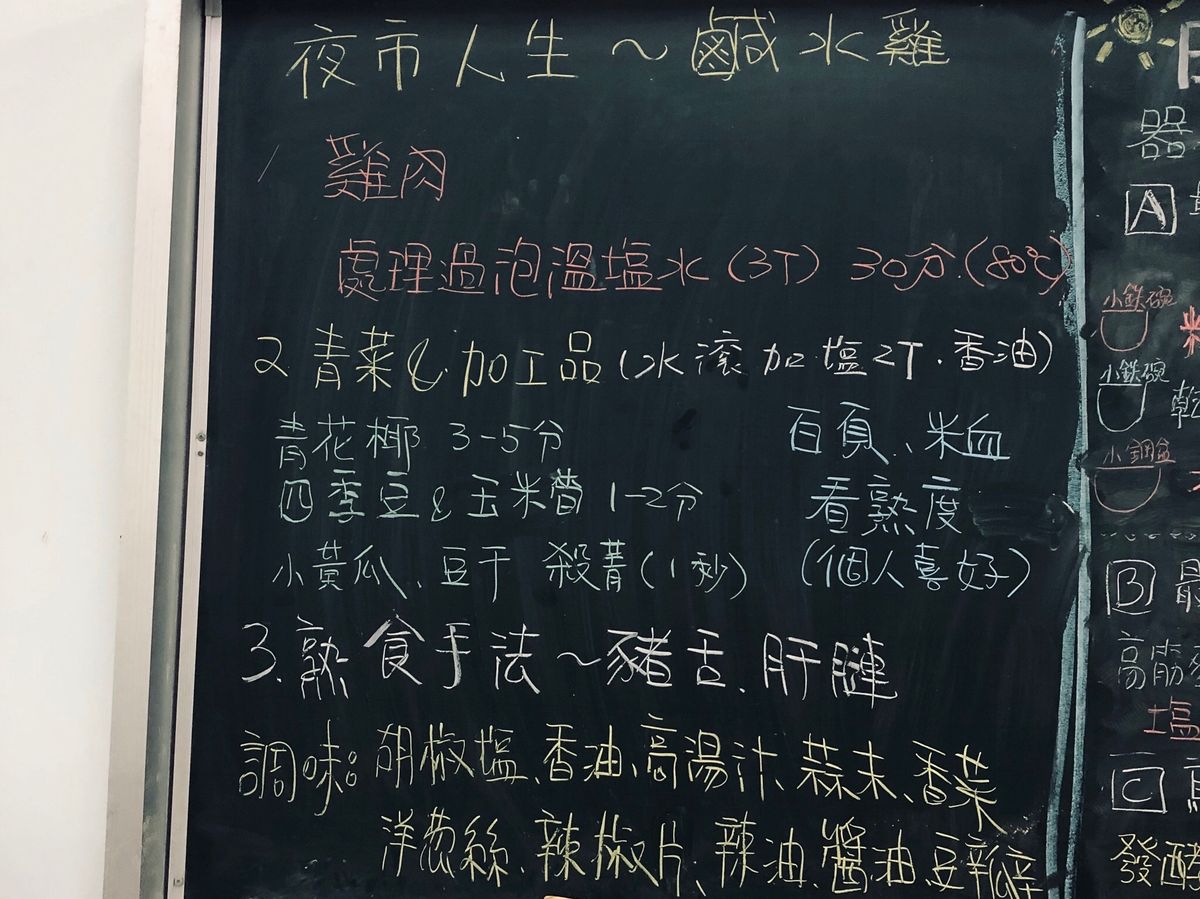 夜市人生～鹹水雞
1 雞肉
處理過泡溫塩水(3T) 30分.(80℃)
2 青菜&加工品(水滾加塩2T.香油)
青花椰 3-5分
百頁、米血
四季豆&玉米筍 1-2分
看熟度
小黃瓜、豆干 殺菁(1秒)
(個人喜好)
3.熟食手法～豬舌、肝腱
調味:胡椒塩、香油、高湯汁、蒜末、香菜
洋葱絲、辣椒片、辣油、醬油、豆瓣
器
A
小鉄碗
小鉄碗
乾
小鋼盆
B 最
高筋
塩
C
發酵